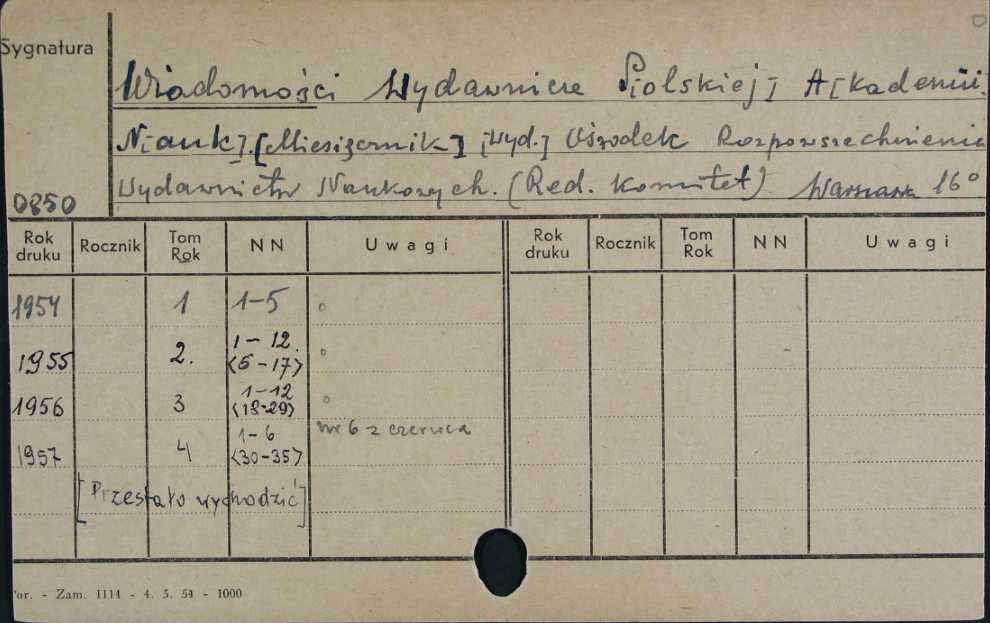 Sygnatura
Wiadomości Wydawnicze P[olskiej] A[kademii]
N[auk]. [Miesięcznik] [wyd.] Ośrodek Rozpowszechnienia
Wydawnictw Naukowych. (Red. Komitet) Warszawa 16°
0850
Rok druku Rocznik Tom Rok NN Uwagi Rok druku Rocznik Tom Rok NN Uwagi
1954 1 1-5
1955 2. 1-12. <6-17>
1956 3 1-12 <18-29>
1957 4 1-6 <30-35> nr 6 z czerwca
[Przestało wychodzić]
or. - Zam. 1114 - 4. 5. 54 - 1000